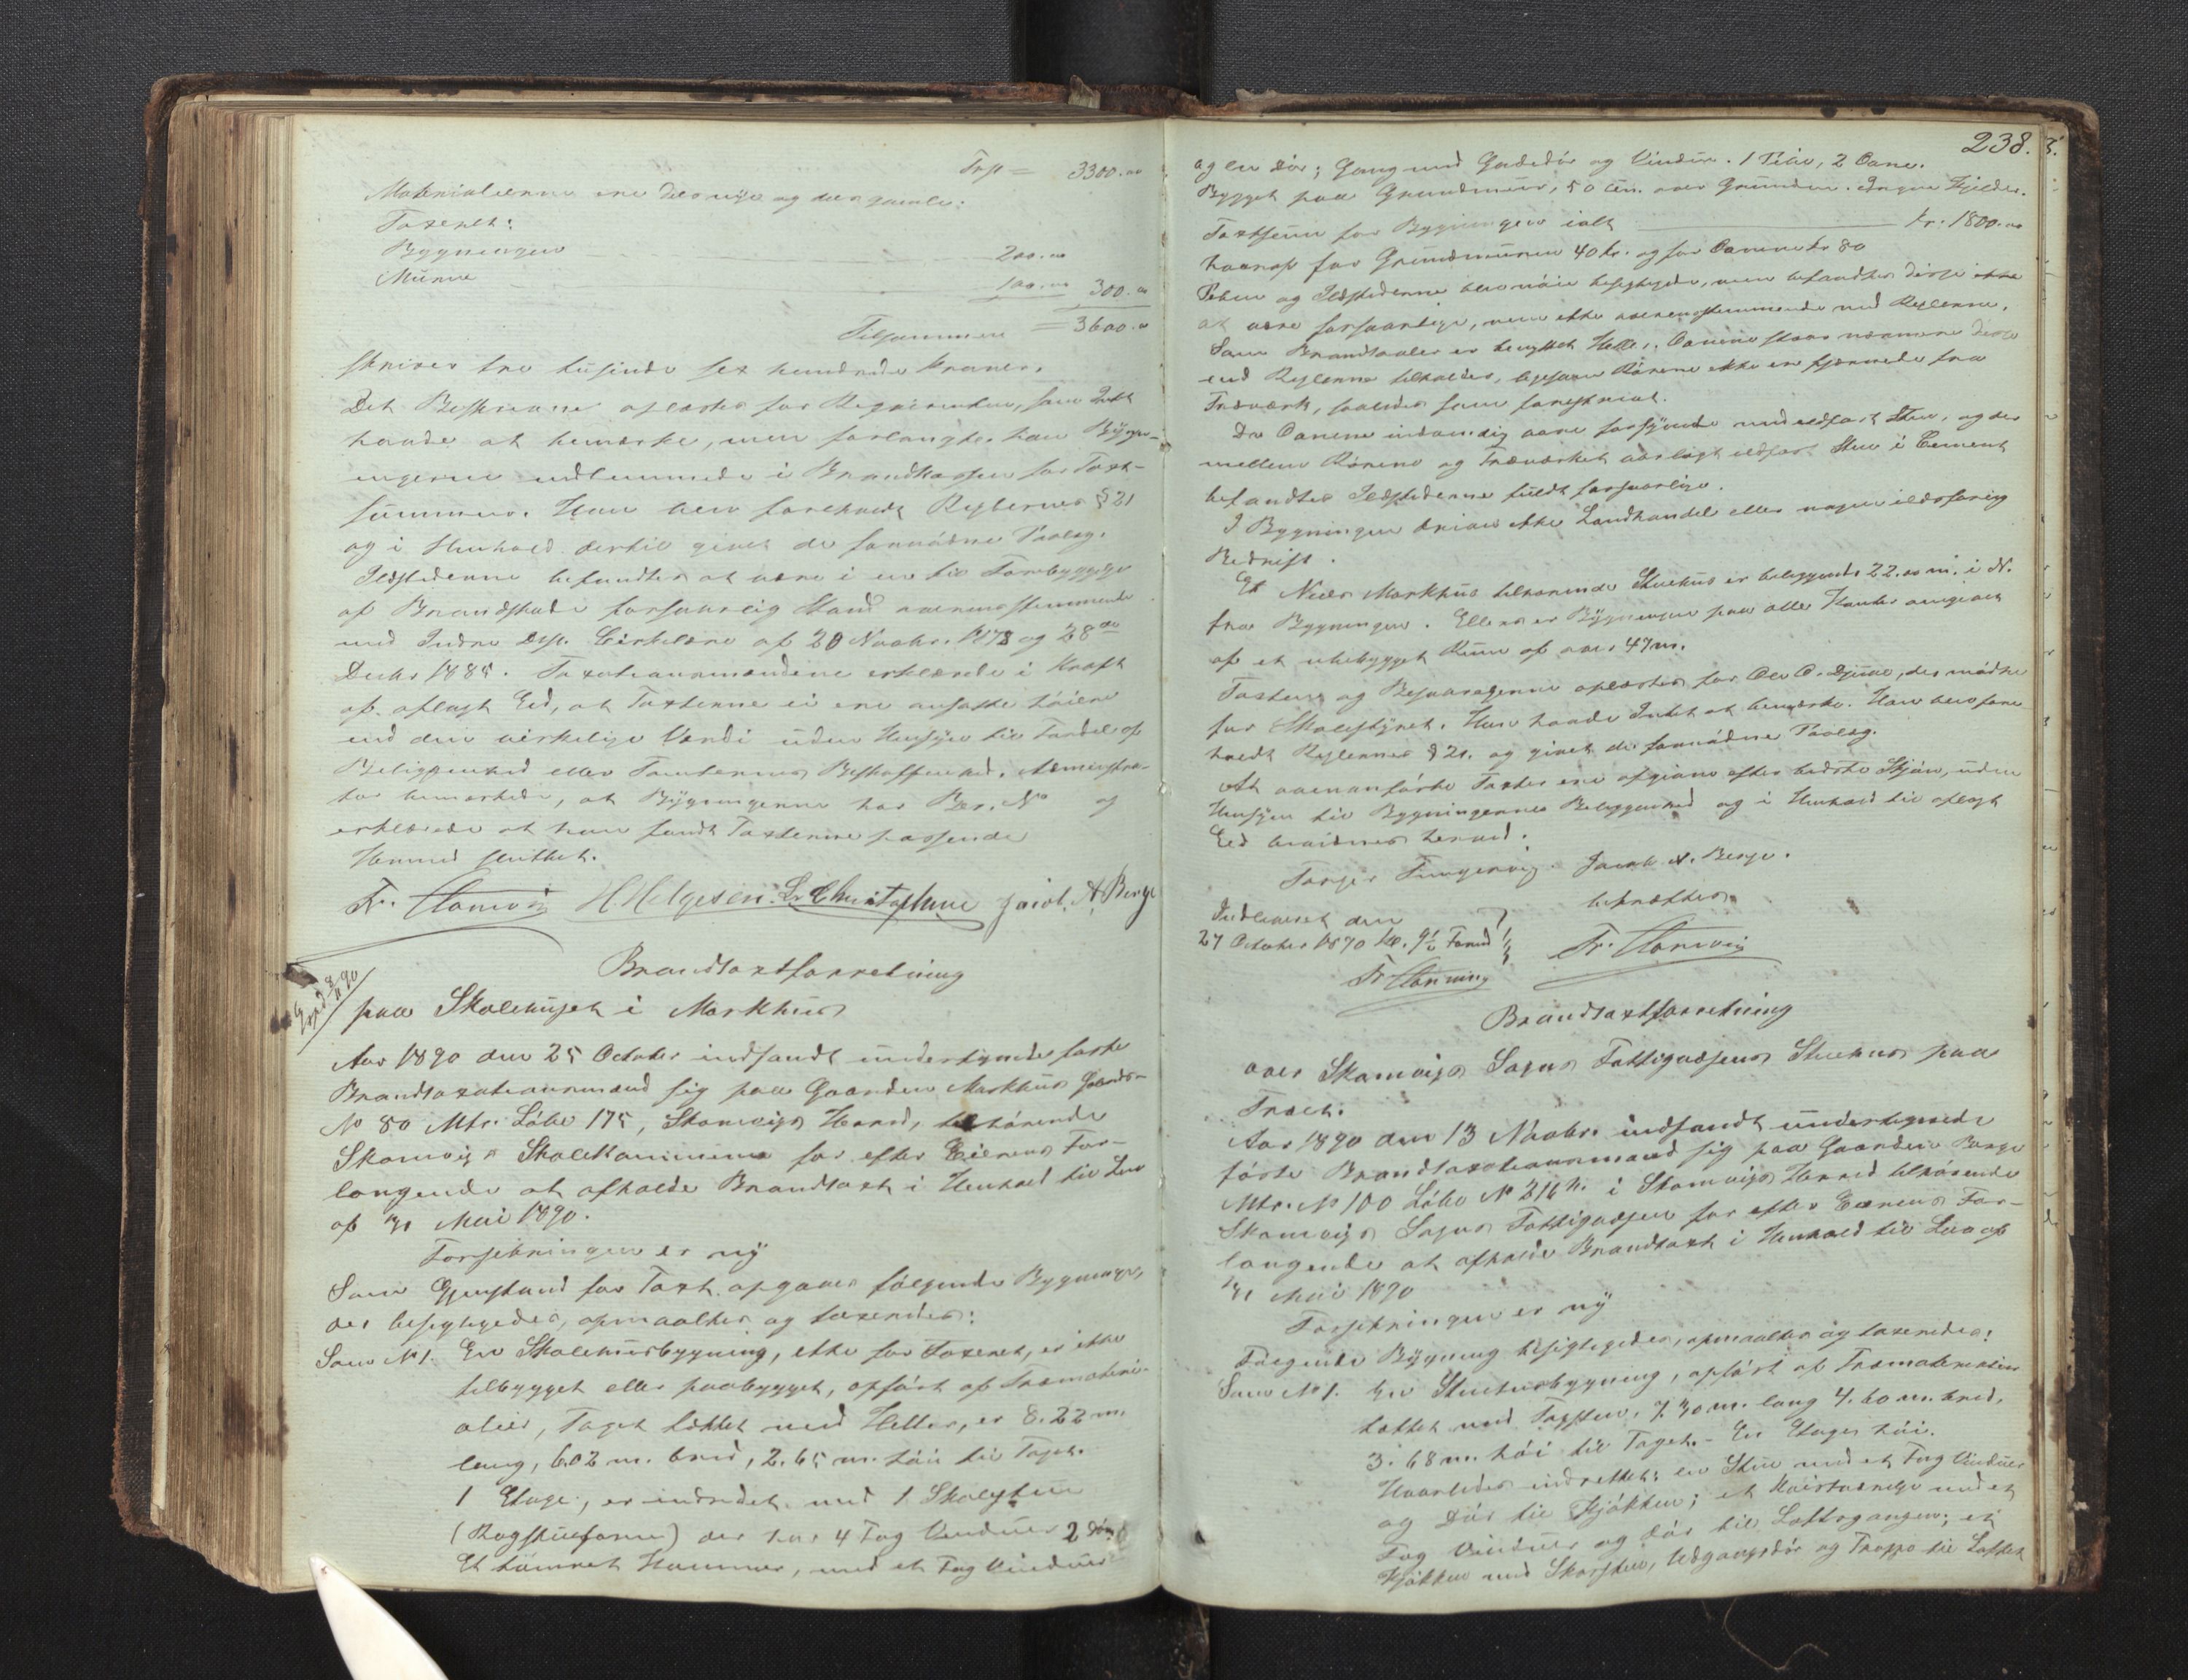 Trp = 3300.00
Materialierne ere dels nye og dels gamle.
Taxeret:
Bygningen 200.00
Murene 100.00 300.00
Tilsammen = 3600.00
skriver tre tusinde sex hundrede Kroner.
Det Beskrevne oplæstes for Rekvirenten, som Intet
havde at bemærke, men forlangte han Bygn-
ingerne indlemmede i Brandkassen for Taxt-
summen. Han blev foreholdt Reglernes § 21
og i Henhold dertil givet de fornødne Paalæg.
Ildstederne befandtes at være i en til Forebyggelse
af Brandskade forsvarlig Stand overensstemmende
med Indre Dep. Cirkulære af 20 Novbr. 1878 og 28de
Decbr 1885. Taxationsmændene erklærede i Kraft
af aflagt Eed, at Taxterne ei ere ansatte høiere
end den virkelige Værdi uden Hensyn til Fordel af
Beliggenhed eller Tomternes Beskaffenhed. Administra-
tor bemærkede, at Bygningerne har Ber. No og
erklærede at han fandt Taxterne passende
Hermed sluttet.
Fr. H. Helgesen. L. Christophersen Jacob. A. Berge
Brandtaxtforretning
Exp. 8/11 90
paa Skolehuset i Markhus
Aar 1890 den 25 October indfandt undertegnede faste
Brandtaxationsmænd sig paa Gaarden Markhus Gaards-
No 80 Mtr. Løbe 175, Skonevigs Herred, tilhørende
Skonevigs Skolekommune for efter Eierens For-
langende at afholde Brandtaxt i Henhold til Lov
af 31 Mai 1890.
Forsikringen er ny
Som Gjenstand for Taxt opgaves følgende Bygninger,
der besigtigedes, opmaaltes og taxeredes:
Som No 1. En Skolehusbygning, ikke før taxeret, er ikke
tilbygget eller paabygget, opført af Træmateri-
alier, Taget tækket med Heller, er 8.22 m.
lang, 6.02 m. bred, 2.65 m. høi til Taget.
1 Etage, er indredet med 1 Skolestue
(Røgstueform) der har 4 Fag Vinduer 2 Døre
Et tømret Kammer, med et Fag Vinduer
238.
og en Dør; Gang med Gadedør og Vindue. 1 Pibe, 2 Ovne.
Bygget paa Grundmuur, 50 cm. over Grunden. Ingen Kjelder.
Taxtsum for Bygningen ialt kr. 1800.00
hvoraf for Grundmuren 40 kr. og for Ovnene kr 80
Piben og Ildstederne blev nøie besigtigede, men befandtes disse
at være forsvarlige, men ikke overensstemmende med Reglerne.
Som Brandsoler er benyttet Heller. Ovnene staar nærmere disse
end Reglerne tilholder, ligesom Rørene ikke er fjernede fra
Træværk, saaledes som foreskrevet.
Da Ovnene indvendig vare forsynede med ildfast Sten, og der
mellem Rørene og Træværket var lagt ildfast Sten i Cement
befandtes Ildstederne fuldt forsvarlige.
I Bygningen drives ikke Landhandel eller nogen ildsfarlig
Bedrift.
Et Nils Markhus tilhørende Stuehus er beliggende 22.00 m. i N.
fra Bygningen. Ellers er Bygningen paa alle Kanter omgivet
af et ubebygget Rum af over 47 m.
Taxten og Besvarelserne oplæstes for Ole O. Djuve, der mødte
for Skolestyret. Han havde Intet at bemærke. Han blev fore
holdt Reglernes § 21. og givet de fornødne Paalæg.
At ovenanførte Taxter ere afgivne efter bedste Skjøn, uden
Hensyn til Bygningernes Beliggenhed og i Henhold til aflagt
Eed bevidnes herved.
Torger Tungesvig. Jacob A. Berge.
bekræftes
Indleveret den
27 October 1890 Kl. 9½ Formd
Fr.
Fr.
Brandtaxtforretning
over Skonevigs Sogns Fattigvæsens Stuehus paa
Træet.
Aar 1890 den 13 Novbr. indfandt undertegnede
faste Brandtaxationsmænd sig paa Gaarden Borge
Mtr. No 100 Løbe No 216 h. i Skonevigs Herred tilhørende
Skonevigs Sogns Fattigvæsen for efter Eierens For-
langende at afholde Brandtaxt i Henhold til Lov af
31 Mai 1890
Forsikringen er ny
Følgende Bygning besigtigedes, opmaaltes og taxeredes:
Som No 1. En Stuehusbygning, opført af Træmaterialier
tækket med Tagsten, 7.30 m. lang 4.60 m. bred,
3.68 m. høi til Taget. - En Etages høi.
Hvorledes indrettet: en Stue med et Fag Vinduer
og Dør til Kjøkken; et Kaarværelse med et
Fag Vinduer og Dør til Loftsgangen; et
Kjøkken med Skorsten, Udgangsdør og Trappe til Loftet